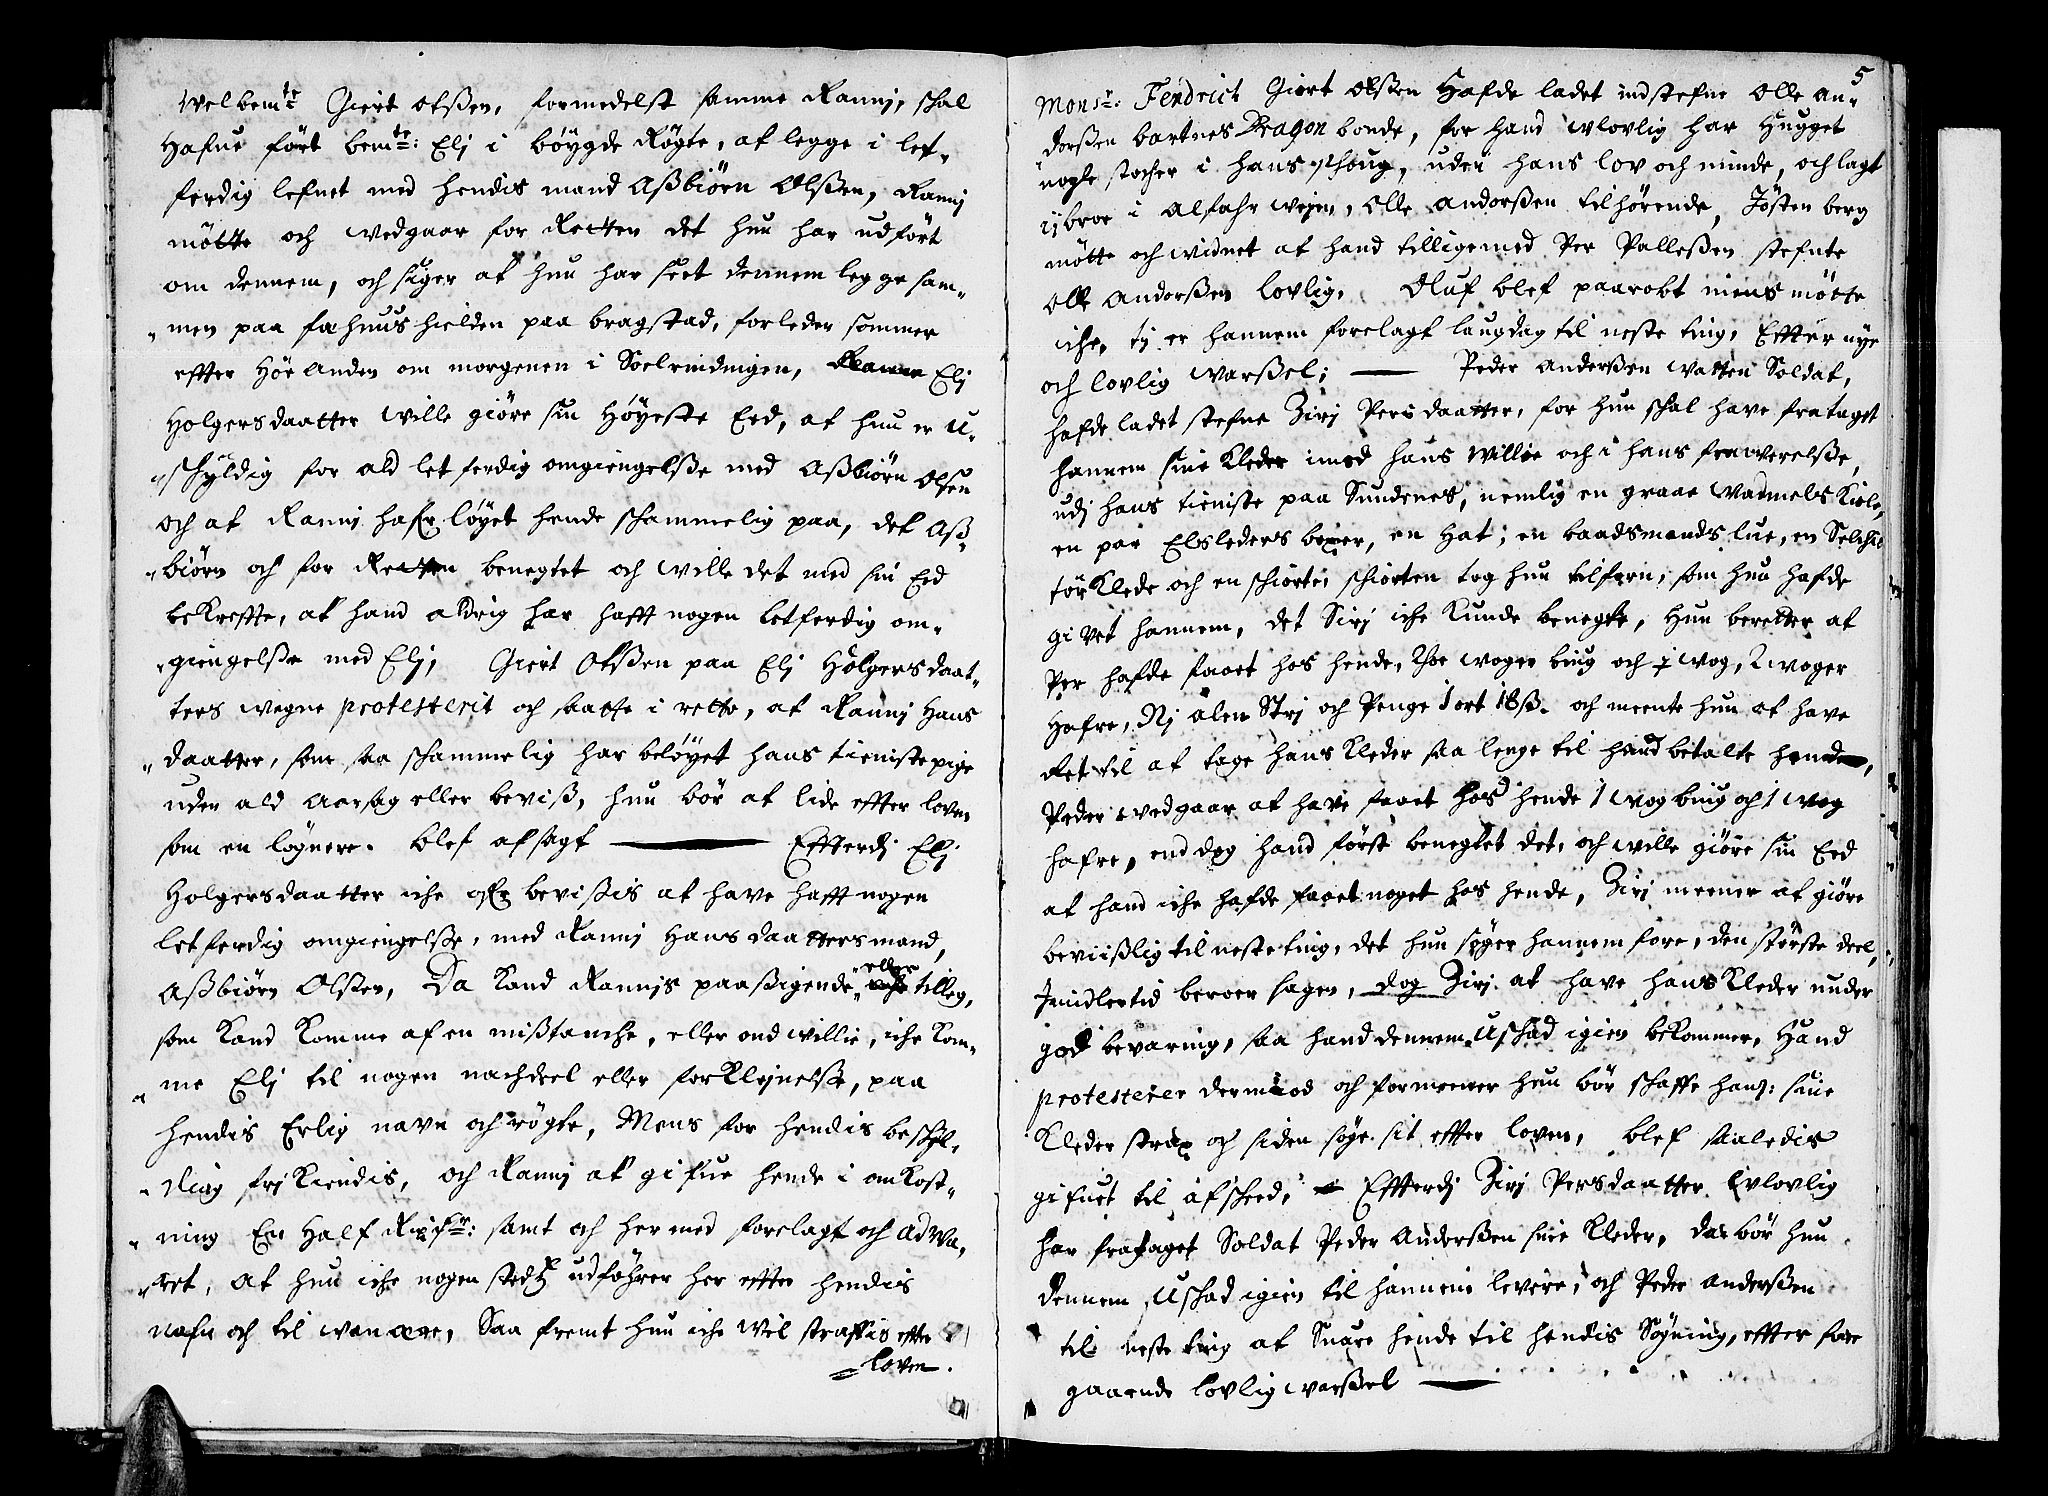 Welbemte Giert olßen, formedelst samme Rannj, schal
Hafue fört bemte: Elj i böygde Rögte, at legge i let-
ferdig lefnet med hendis mand Aßbiörn Olßen, Rannj
mötte och wedgaar for Retten det hun har udfört
om dennem, och siger at hun har seet dennem legge sam-
men paa fæhuus hielden paa bragstad, forleden sommer
effter Höe anden om morgenen i Soelrindingen, Elj
Holgersdaatter wille giöre sin Höyeste Eed, at hun er u-
schyldig for ald letferdig omgiengelße med Aßbiörn olsen
och at Rannj hafr löyet hende schammelig paa, det Aß-
biörn och for Retten benegtet och wille det med sin Eed
bekreffte, at hand aldrig har hafft nogen letferdig om-
giengelße med Elj, Giert Olßen paa Elj Holgersdaat-
ters wegne protesterit och satte i rette, at Rannj Hans
daatter, som saa schammelig har beløyet hans tienistepige
uden ald Aarsag eller beviß, hun bör at lide effter loven
som en lögnere. blef afsagt — Effterdj Elj
Holgersdaatter iche ofr bevißis at have hafft nogen
letferdig omgiengelße, med Rannj Hansdaatters mand,
Aßbiörn Olßen, Da Kand Rannjs paaßigende eller tilleg,
som kand komme af en mißtanche, eller ond willie, iche kom-
me Elj til nogen nachdeel eller forklejnelße, paa
hendis Erlig navn och rögte, Mens for hendis beschyl-
ding frj kiendis, och Rannj at gifue hende i omkost-
ning En Half Rixdlr: samt och hermed forelagt och adva-
ret, at hun iche nogen stedtz udföhrer her effter hendis
nafn och til wanære, Saa fremt hun iche wil straffis effter
loven.
5
Monsr: Fendrich Giert olßen Hafde ladet indstefne olle An-
dorßen bartnes Dragon bonde, for hand wlovlig har Hugget
nogle stocher i hans schoug, uden hans lov och minde, och lagt
ij broe i alfahr wejen, olle andorßen tilhörende, Jösten berg
mötte och widnet at hand tilligemed Per Palleßen stefnte
olle andorßen lovlig. Oluf blef paarobt mens mötte
iche, tj er hannem forelagt laugdag til neste ting, Effter nye
och lovlig warßel; — Peder Anderßen watten Soldat,
hafde ladet stefne Zirj Persdaatter, for hun schal have frataget
hannem sine kleder imod hans willie och i hans frawerelße,
udj hans tieniste paa Sundenes, nemlig en graae wadmels kiole,
en par Elsleders boxer, en Hat; en baadsmands lue, en
törklede och en schiorte; schiorten tog hun tilforn, som hun hafde
givet hannem, det Sirj iche kunde benegte, Hun beretter at
Per hafde faaet hos hende, Thoe woger biug och i wog, 2 woger
Hafre, Nj alen Strj och Penge 1 ort 18 ß. och meente hun at have
Ret til at tage hans kleder saa lenge til hand betalte hende,
Peder wedgaar at have faaet hos hende 1 wog biug och 1 wog
hafre, end dog hand förste benegtet det, och wille giöre sin Eed
at hand iche hafde faaet noget hos hende, Zirj meener at giöre
beviißlig til neste ting, det hun söger hannem fore, den störste deel,
Imidlertid beroer sagen, dog Zirj at have hans kleder under
god bevaring, saa hand dennem uschad igien bekommer, Hand
protesterer dermod och formeener hun bör schaffe hans: sine
kleder strax och siden söge sit effter loven, blef saaledis
gifuet til afscheed, Effterdj Zirj Persdaatter wlovlig
har frataget Soldat Peder Anderßen sine kleder, da bör hun
dennem uschad igien til hannem levere, och Peder anderßen
til neste ting at Suare hende til hendis Søgning, effter fore
gaaende lovlig warßel —